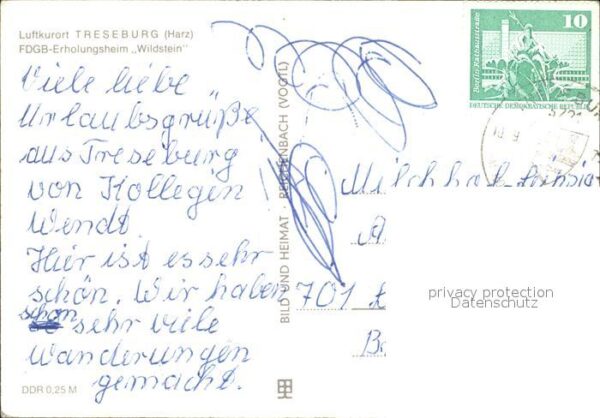 Luftkurort TRESEBURG (Harz)
FDGB-Erholungsheim „Wildstein"
Viele liebe
Urlaubsgrüße
aus Treseburg
von Kollegin
Wendt
Hier ist es sehr
schön. Wir haben
schon sehr viele
Wanderungen
gemacht.
DDR 0,25 M
BILD UND HEIMAT REICHENBACH (VOGTL)
10
Berlin Rathausstraße
DEUTSCHE DEMOKRATISCHE REPUBLIK
A
701 L
privacy protection
Datenschutz